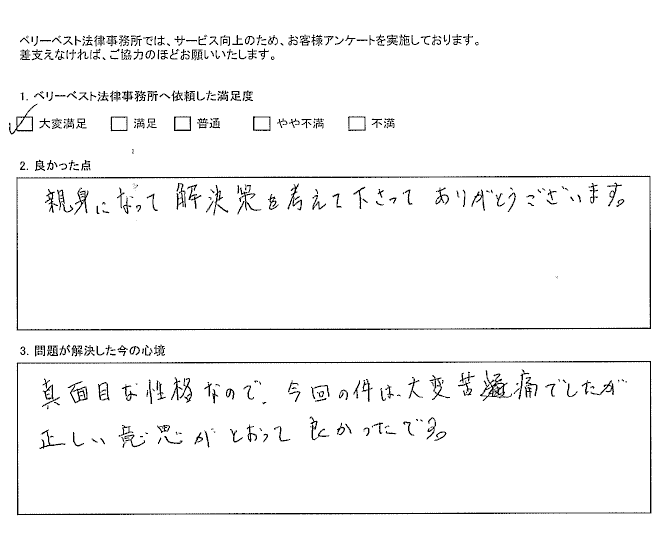 ベリーベスト法律事務所では、サービス向上のため、お客様アンケートを実施しております。
差支えなければ、ご協力のほどお願いいたします。
1. ベリーベスト法律事務所へ依頼した満足度
大変満足 満足 普通 やや不満 不満
2. 良かった点
親身になって解決策を考えて下さってありがとうございます。
3. 問題が解決した今の心境
真面目な性格なので、今回の件は、大変苦痛でしたが
正しい意思がとおって良かったです。